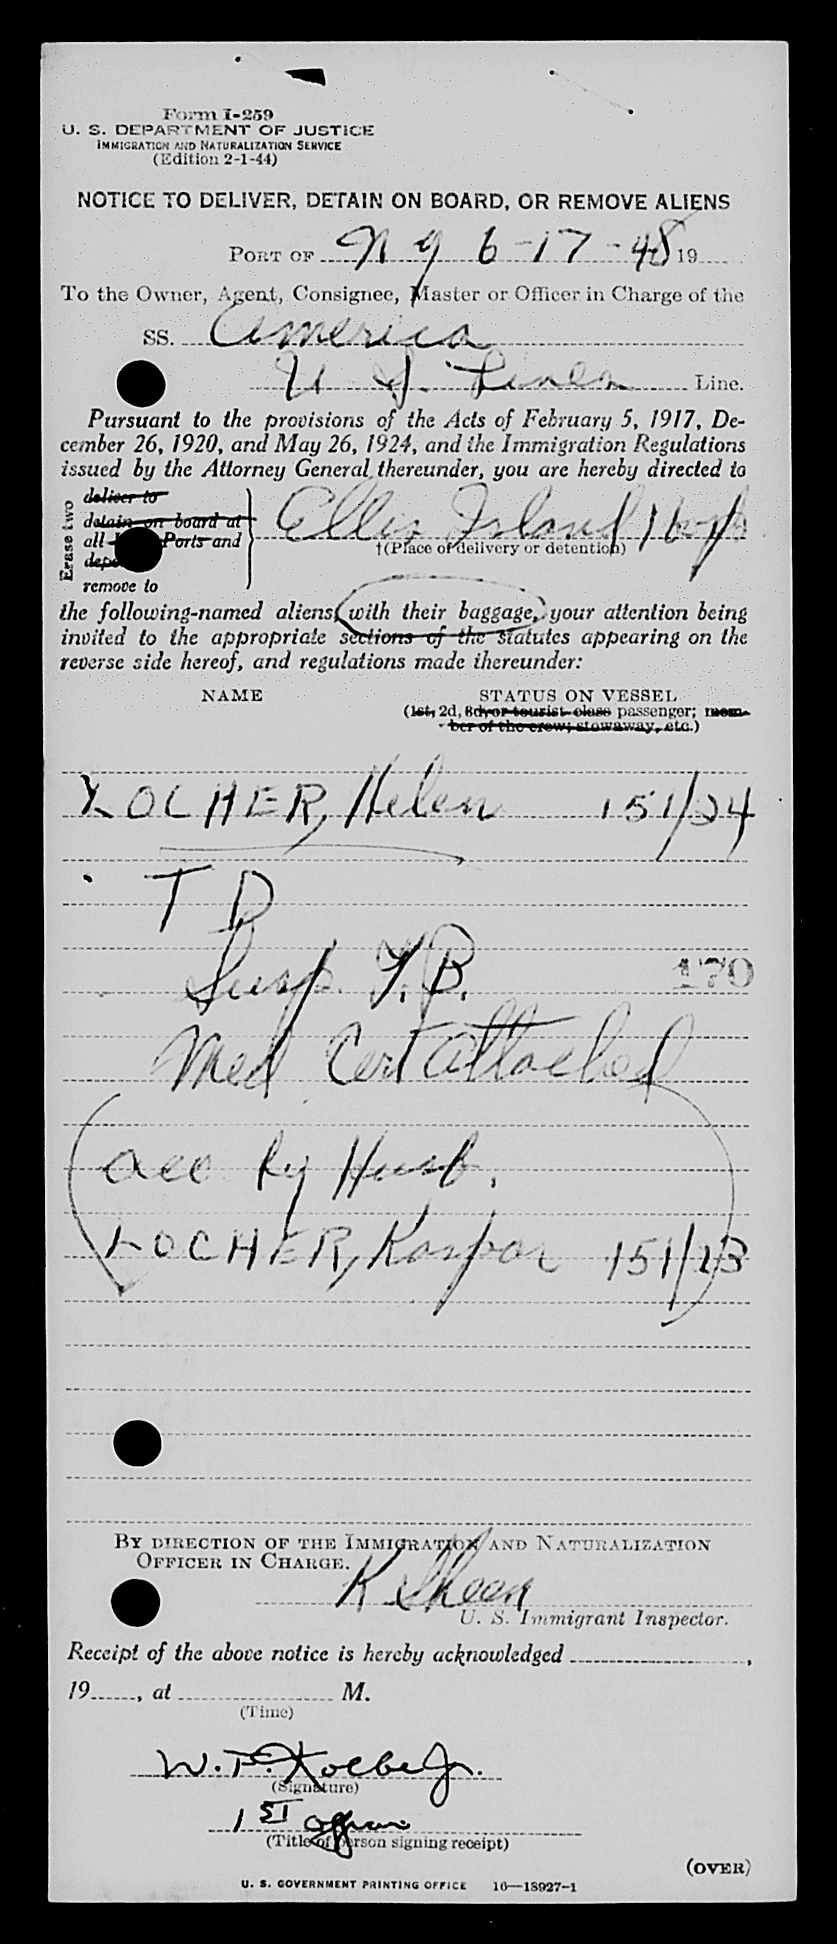 Form I-259
U. S. DEPARTMENT OF JUSTICE
IMMIGRATION AND NATURALIZATION SERVICE
(Edition 2-1-44)
NOTICE TO DELIVER, DETAIN ON BOARD, OR REMOVE ALIENS
PORT OF N Y 6-17-48 19
To the Owner, Agent, Consignee, Master or Officer in Charge of the
SS. America
U S. Lines Line.
Pursuant to the provisions of the Acts of February 5, 1917, De-
cember 26, 1920, and May 26, 1924, and the Immigration Regulations
issued by the Attorney General thereunder, you are hereby directed to
Erase two
deliver to
detain on board at
all Ports and
remove to
Ellis Island
†(Place of delivery or detention)
the following-named aliens, with their baggage, your attention being
invited to the appropriate sections of the statutes appearing on the
reverse side hereof, and regulations made thereunder:
NAME STATUS ON VESSEL
(1st, 2d, 3d, or tourist-class passenger; mem-
ber of the crew; stowaway, etc.)
LOCHER, Helen 151/24
T D
Susp. T.B. 170
Med Cert attached
(acc by Husb.
LOCHER, Kaspar 151/23)
BY DIRECTION OF THE IMMIGRATION AND NATURALIZATION
OFFICER IN CHARGE.
K Skeen
U. S. Immigrant Inspector.
Receipt of the above notice is hereby acknowledged ,
19 , at M.
(Time)
W. P. Kolbe Jr.
(Signature)
1ST officer
(Title of person signing receipt)
(OVER)
U. S. GOVERNMENT PRINTING OFFICE 16—18927-1